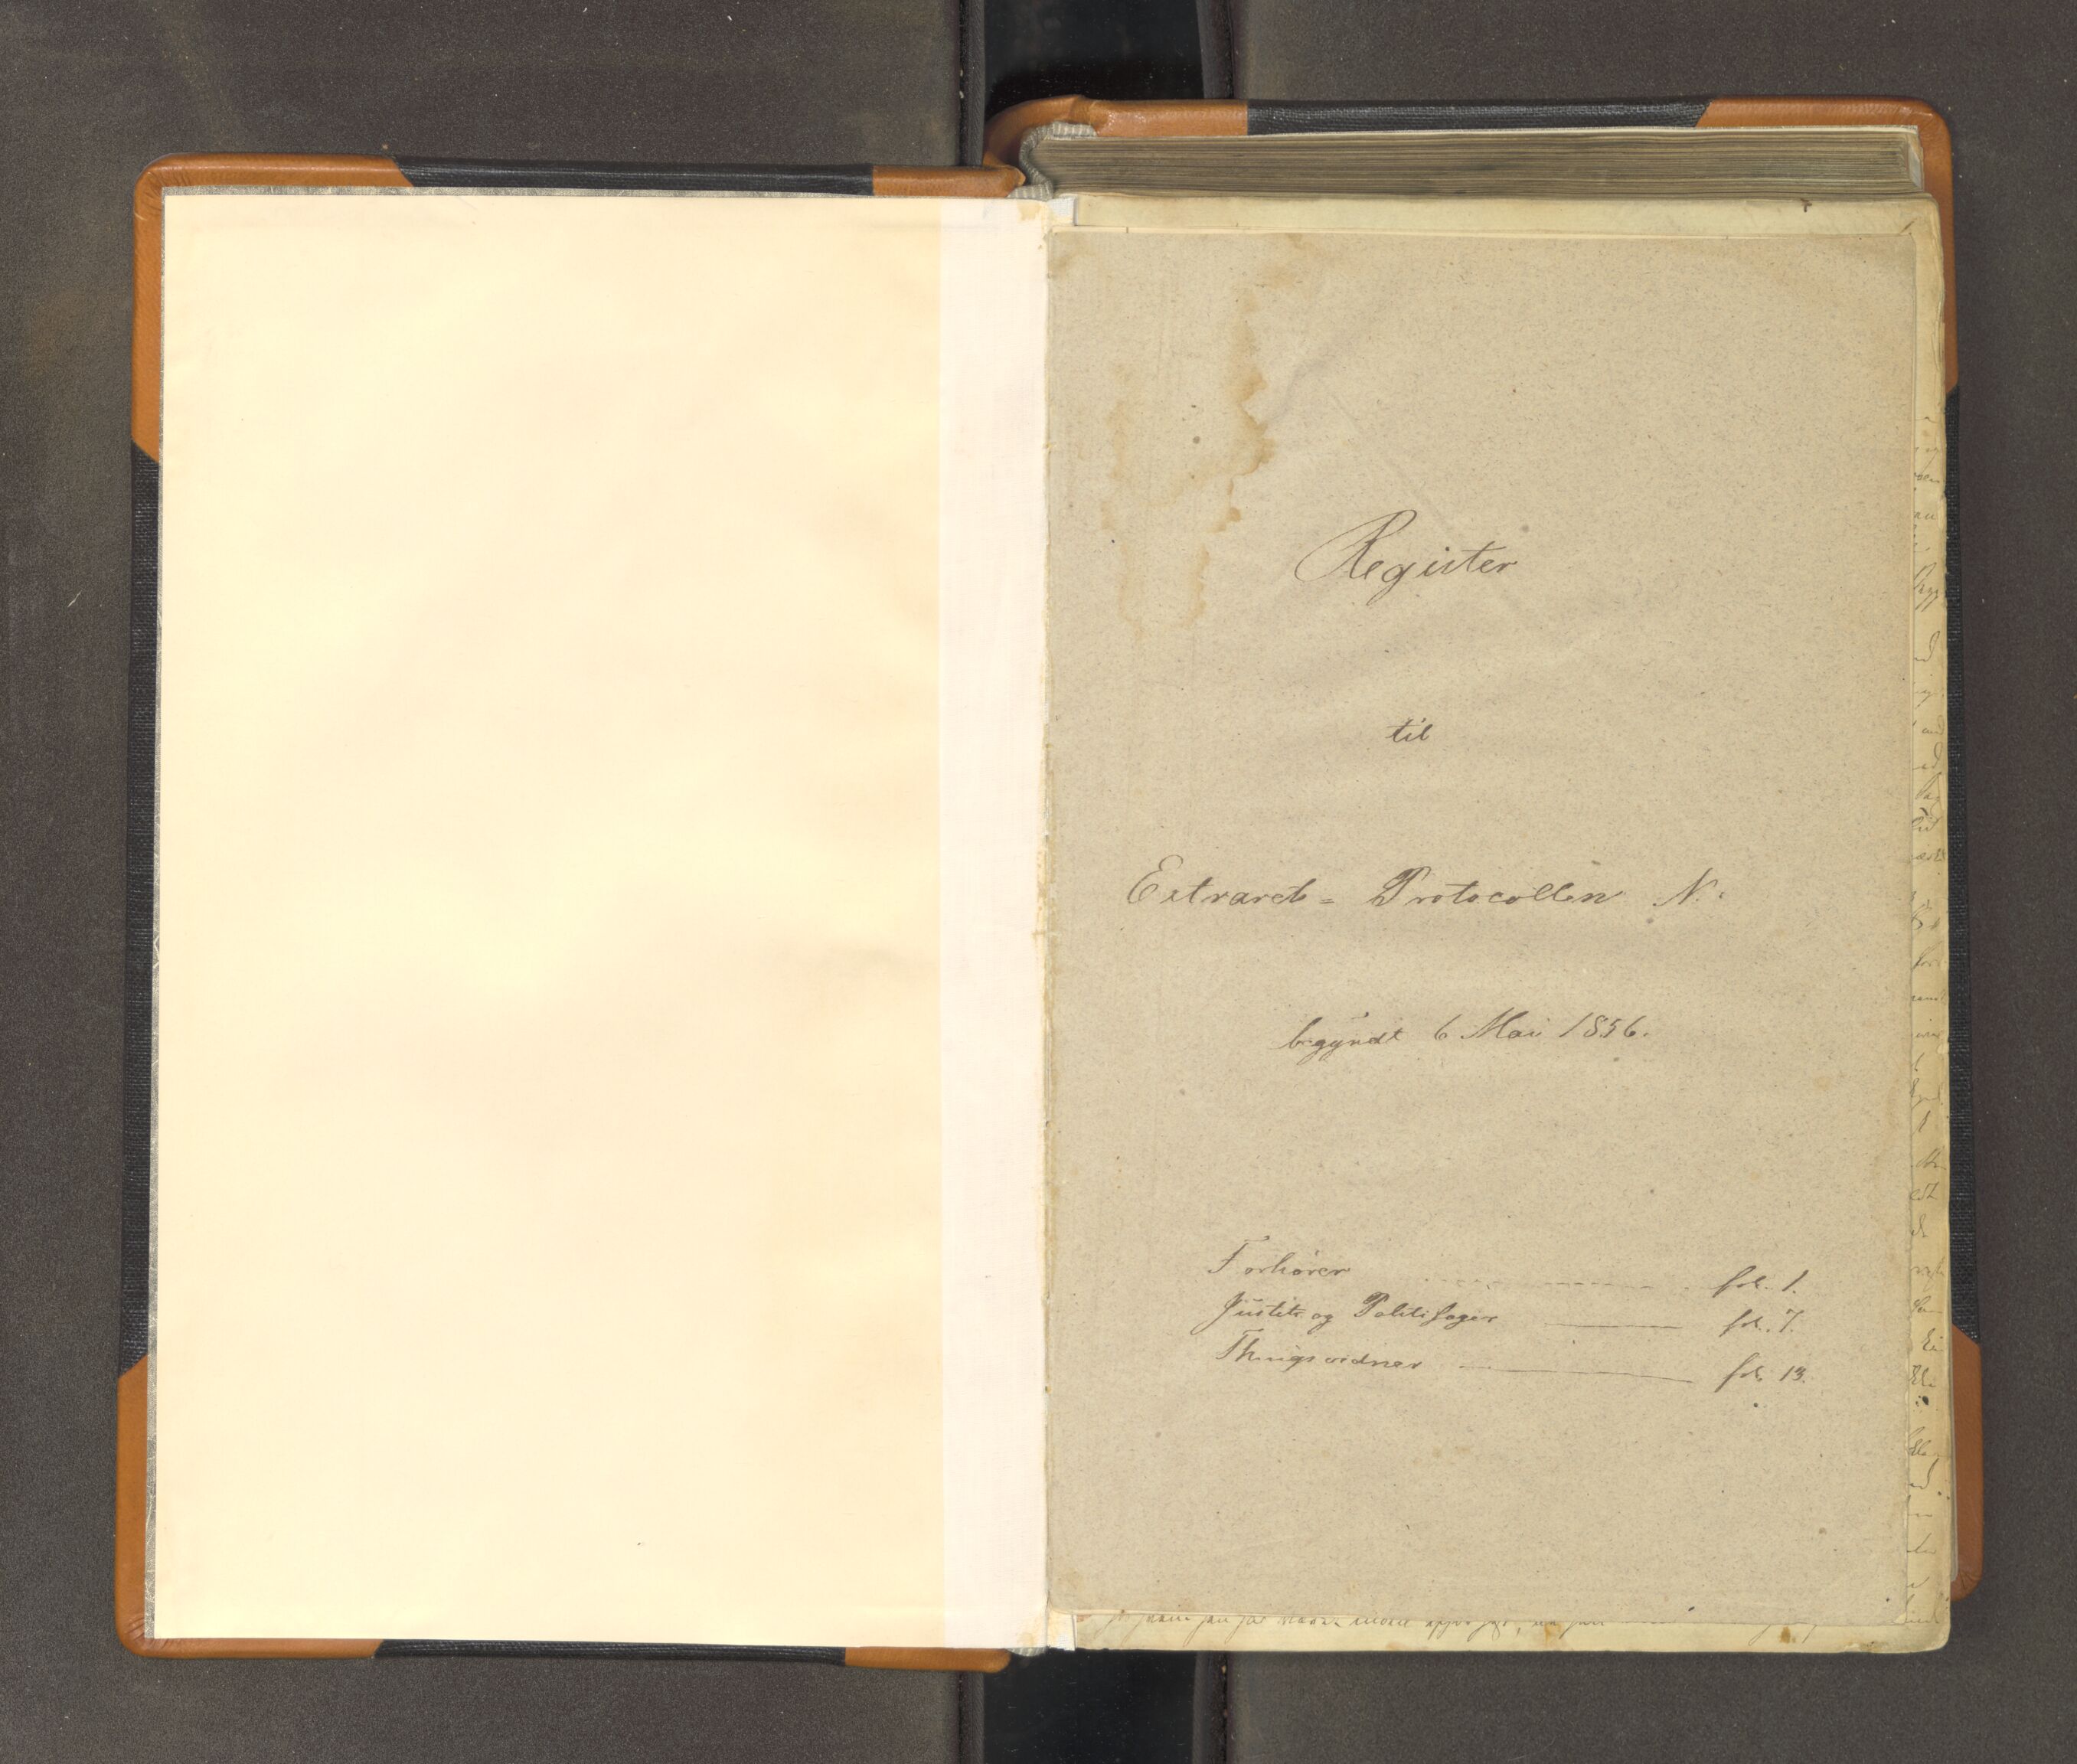 Register
til
Extraret = Protocollen N:
begyndt 6 Mai 1856.
Forhører - - - - - - - - fol. 1.
Justits og Politisager ——— fol. 7.
Thingsvidner ——— fol. 13.